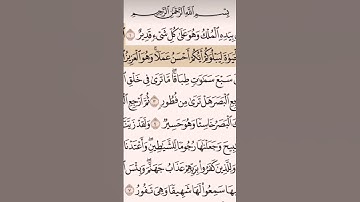 بِسْمِ ٱللَّهِ ٱلرَّحْمَٰنِ ٱلرَّحِيمِ
بِيَدِهِ ٱلْمُلْكُ وَهُوَ عَلَىٰ كُلِّ شَىْءٍ قَدِيرٌ ١
حَيَوٰةَ لِيَبْلُوَكُمْ أَيُّكُمْ أَحْسَنُ عَمَلًا وَهُوَ ٱلْعَزِيزُ
سَبْعَ سَمَٰوَٰتٍ طِبَاقًا مَّا تَرَىٰ فِى خَلْقِ
ٱلْبَصَرَ هَلْ تَرَىٰ مِن فُطُورٍ ٣ ثُمَّ ٱرْجِعِ
ٱلْبَصَرُ خَاسِئًا وَهُوَ حَسِيرٌ ٤ وَلَقَدْ زَيَّنَّا
بِيحَ وَجَعَلْنَٰهَا رُجُومًا لِّلشَّيَٰطِينِ وَأَعْتَدْنَا
وَلِلَّذِينَ كَفَرُوا۟ بِرَبِّهِمْ عَذَابُ جَهَنَّمَ وَبِئْسَ
هَا سَمِعُوا۟ لَهَا شَهِيقًا وَهِىَ تَفُورُ ٧